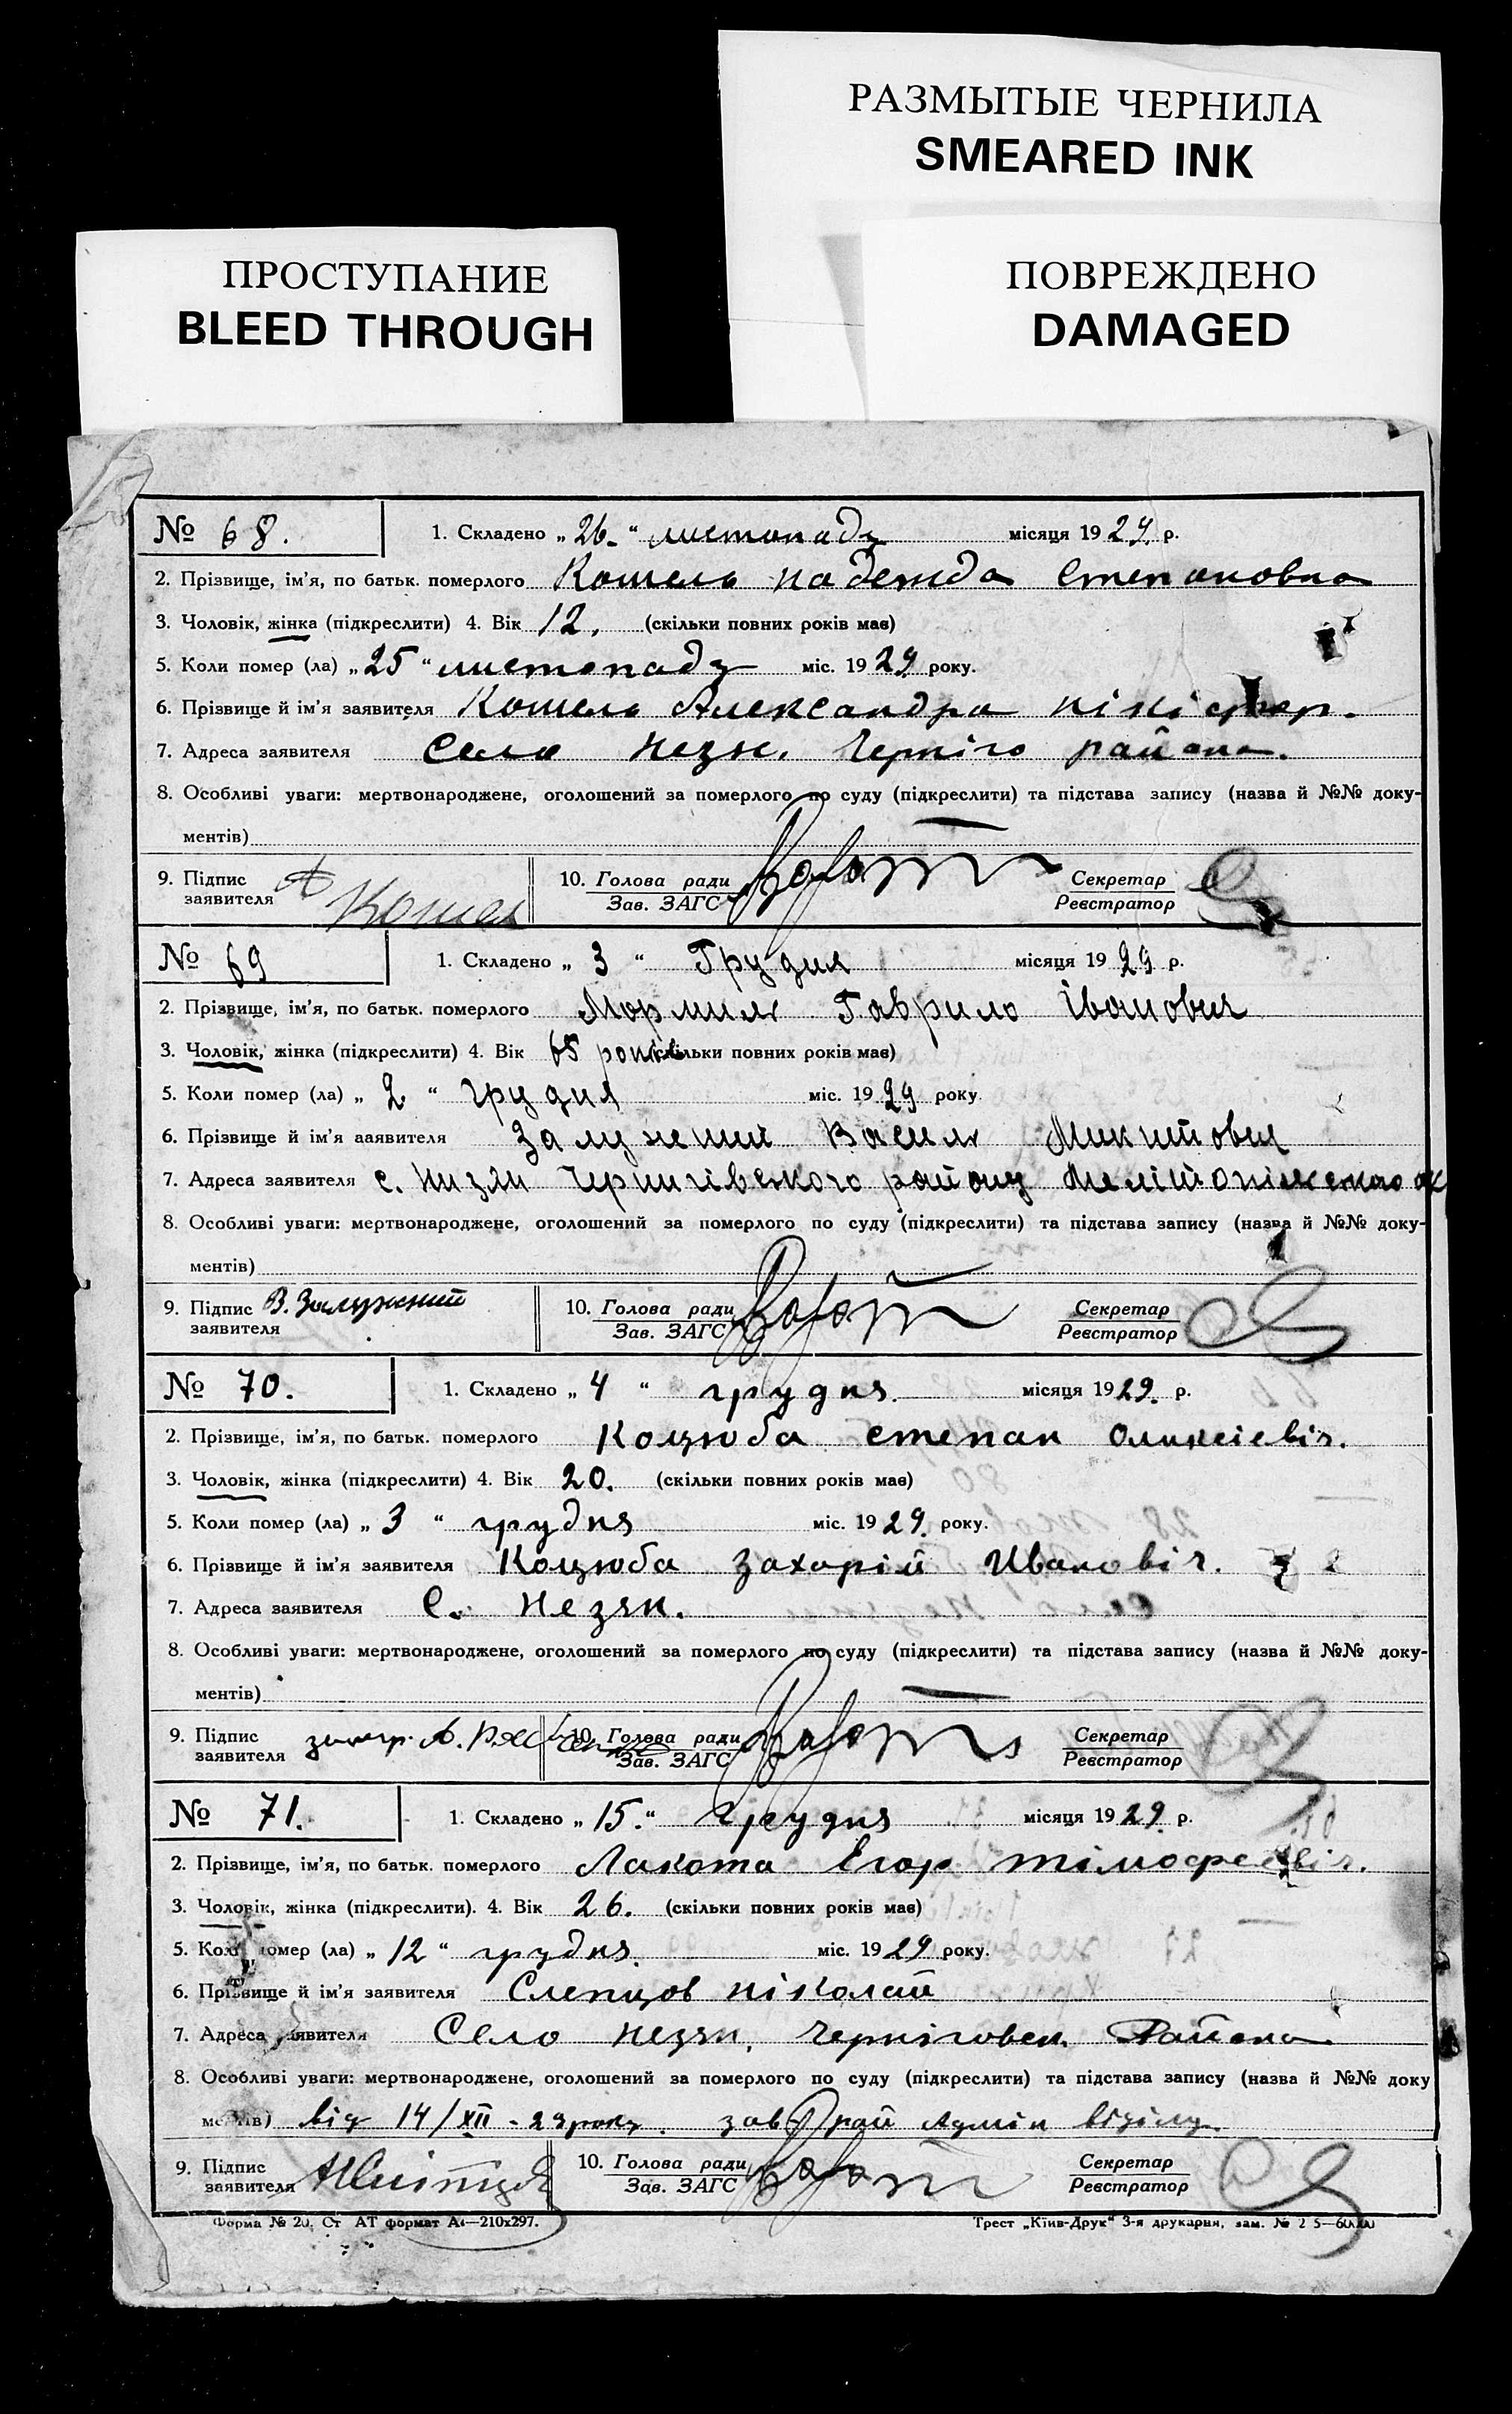 РАЗМЫТЫЕ ЧЕРНИЛА
SMEARED INK
ПРОСТУПАНИЕ
BLEED THROUGH
ПОВРЕЖДЕНО
DAMAGED
№ 68. 1. Складено „ 26. “ листопаду місяця 1929. р.
2. Прізвище, ім'я, по батьк. померлого Кошель Надежда Степановна
3. Чоловік, жінка (підкреслити) 4. Вік 12. (скільки повних років має)
5. Коли помер (ла) „ 25 “ листопаду міс. 1929 року.
6. Прізвище й ім'я заявителя Кошель Александра
7. Адреса заявителя Село Незян. Черніго района.
8. Особливі уваги: мертвонароджене, оголошений за померлого по суду (підкреслити) та підстава запису (назва й №№ доку-
ментів)
9. Підпис заявителя А Кошел 10. Голова ради Зав. ЗАГС Секретар Реєстратор
№ 69 1. Складено „ 3 “ Грудня місяця 1929 р.
2. Прізвище, ім'я, по батьк. померлого Мормиль Гаврило Іванович
3. Чоловік, жінка (підкреслити) 4. Вік 65 років (скільки повних років має)
5. Коли помер (ла) „ 2 “ грудня міс. 1929 року
6. Прізвище й ім'я заявителя Залужений Василь Микитович
7. Адреса заявителя с. Низяни Чернигівського району Мелітопільского ок
8. Особливі уваги: мертвонароджене, оголошений за померлого по суду (підкреслити) та підстава запису (назва й №№ доку-
ментів)
9. Підпис заявителя В. Залужний 10. Голова ради Зав. ЗАГС Секретар Реєстратор
№ 70. 1. Складено „ 4 “ грудня. місяця 1929. р.
2. Прізвище, ім'я, по батьк. померлого Коцюба Степан Оликсієвіч.
3. Чоловік, жінка (підкреслити) 4. Вік 20. (скільки повних років має)
5. Коли помер (ла) „ 3 “ грудня міс. 1929. року.
6. Прізвище й ім'я заявителя Коцюба Захарій Ивановіч.
7. Адреса заявителя С. Незян.
8. Особливі уваги: мертвонароджене, оголошений за померлого по суду (підкреслити) та підстава запису (назва й №№ доку-
ментів)
9. Підпис заявителя 10. Голова ради Зав. ЗАГС Секретар Реєстратор
№ 71. 1. Складено „ 15. “ Грудня місяця 1929. р.
2. Прізвище, ім'я, по батьк. померлого Лакота Егор Тімофеевіч.
3. Чоловік, жінка (підкреслити). 4. Вік 26. (скільки повних років має)
5. Коли помер (ла) „ 12 “ грудня. міс. 1929 року.
6. Прізвище й ім'я заявителя Слепцов Ніколай
7. Адреса заявителя Село Незян, Черніговск. Района
8. Особливі уваги: мертвонароджене, оголошений за померлого по суду (підкреслити) та підстава запису (назва й №№ доку
ментів) від 14/XII - 29 року. зав Рай Адмін відділу.
9. Підпис заявителя 10. Голова ради Зав. ЗАГС Секретар Реєстратор
Форма № 20. Ст АТ формат А4—210x297. Трест „Київ-Друк“ 3-я друкарня, зам. №